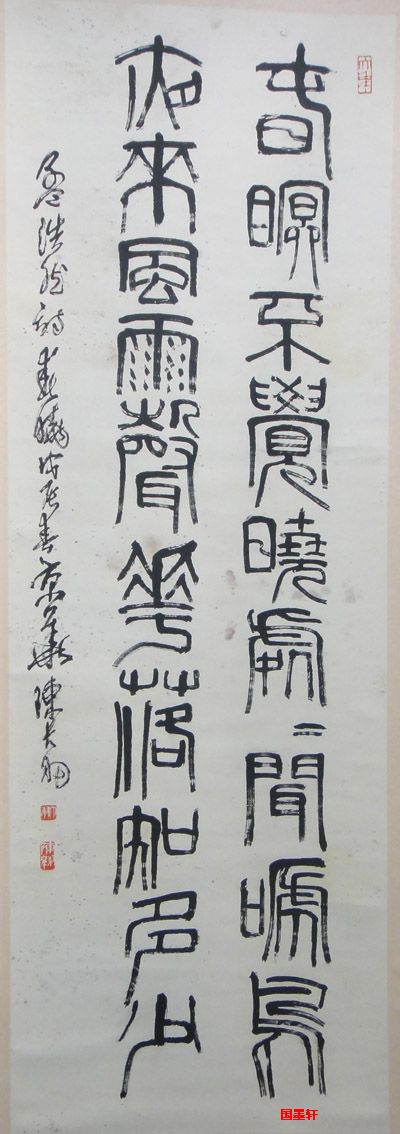 春眠不覺曉處〻聞啼鳥
夜來風雨聲花落知多少
孟浩然詩春曉戊辰春京陳大羽
国墨轩